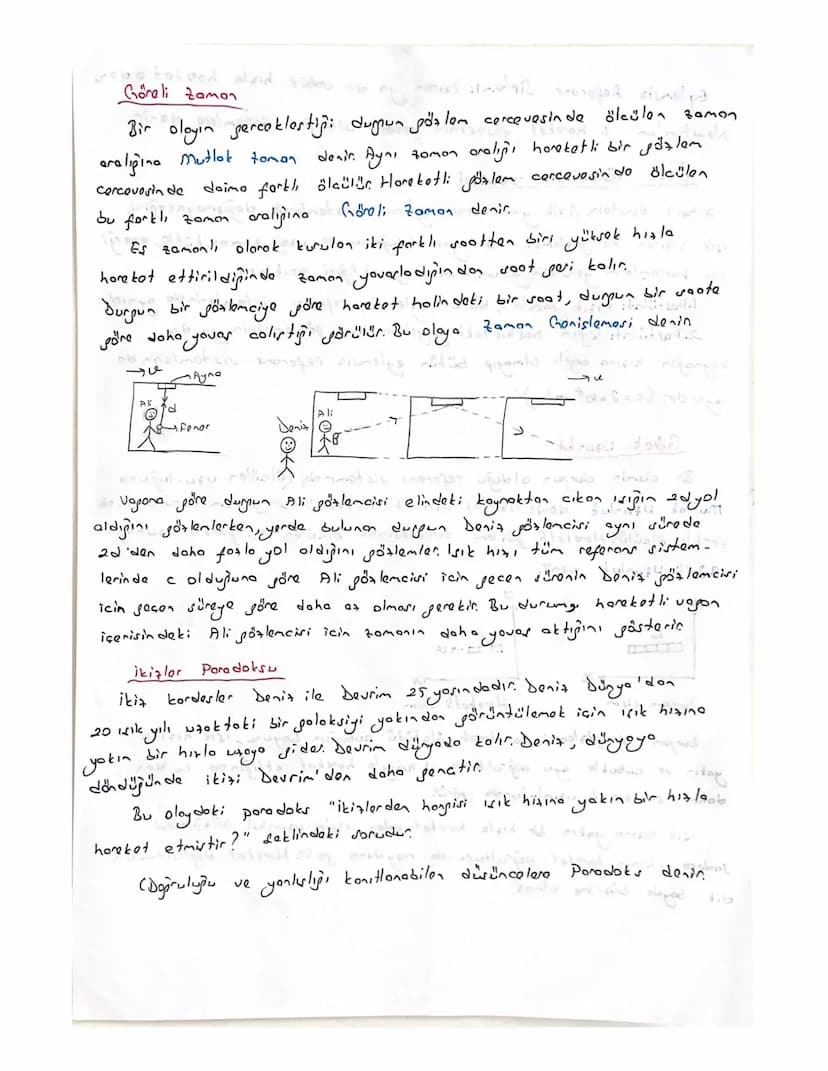 Göreli Zaman
Bir olayın gerçekleştiği durgun gözlem çerçevesinde ölçülen zaman
aralığına Mutlak zaman denir. Aynı zaman aralığı hareketli bir gözlem
çerçevesinde daima farklı ölçülür. Hareketli gözlem çerçevesinde ölçülen
bu farklı zaman aralığına Göreli zaman denir.
Eş zamanlı olarak kurulan iki farklı saatten biri yüksek hızla
hareket ettirildiğinde zaman yavaşladığından saat geri kalır.
Durgun bir gözlemciye göre hareket halindeki bir saat, durgun bir saate
göre daha yavaş çalıştığı görülür. Bu olaya Zaman Genişlemesi denir
v
Ayna
Ali
d
Fener
Deniz
Ali
v
Vagona göre durgun Ali gözlemcisi elindeki kaynaktan çıkan ışığın 2d yol
aldığını gözlemlerken, yerde bulunan durgun Deniz gözlemcisi aynı sürede
2d'den daha fazla yol aldığını gözlemler. Işık hızı tüm referans sistem-
lerinde c olduğuna göre Ali gözlemcisi için geçen sürenin Deniz gözlemcisi
için geçen süreye göre daha az olması gerekir. Bu durum, hareketli vagon
içerisindeki Ali gözlemcisi için zamanın daha yavaş aktığını gösterir
İkizler Paradoksu
İkiz kardeşler Deniz ile Devrim 25 yaşındadır. Deniz Dünya'dan
20 ışık yılı uzaktaki bir galaksiyi yakından görüntülemek için ışık hızına
yakın bir hızla uzaya gider. Devrim dünyada kalır. Deniz, dünyaya
döndüğünde ikizi Devrim'den daha gençtir.
Bu olaydaki paradoks "ikizlerden hangisi ışık hızına yakın bir hızla
hareket etmiştir?" şeklindeki sorudur.
(Doğruluğu ve yanlışlığı kanıtlanabilen düşüncelere Paradoks denir.